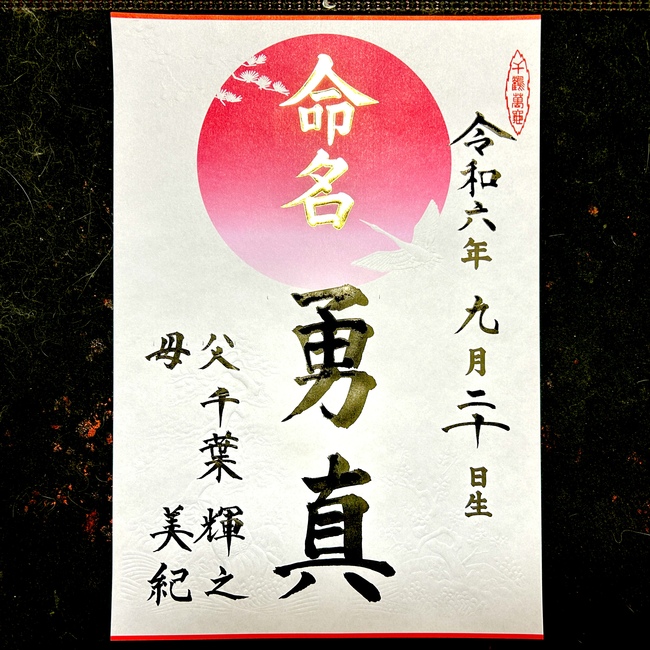 千鶴萬亀
令和六年九月二十日生
命名
勇真
父千葉輝之
母美紀